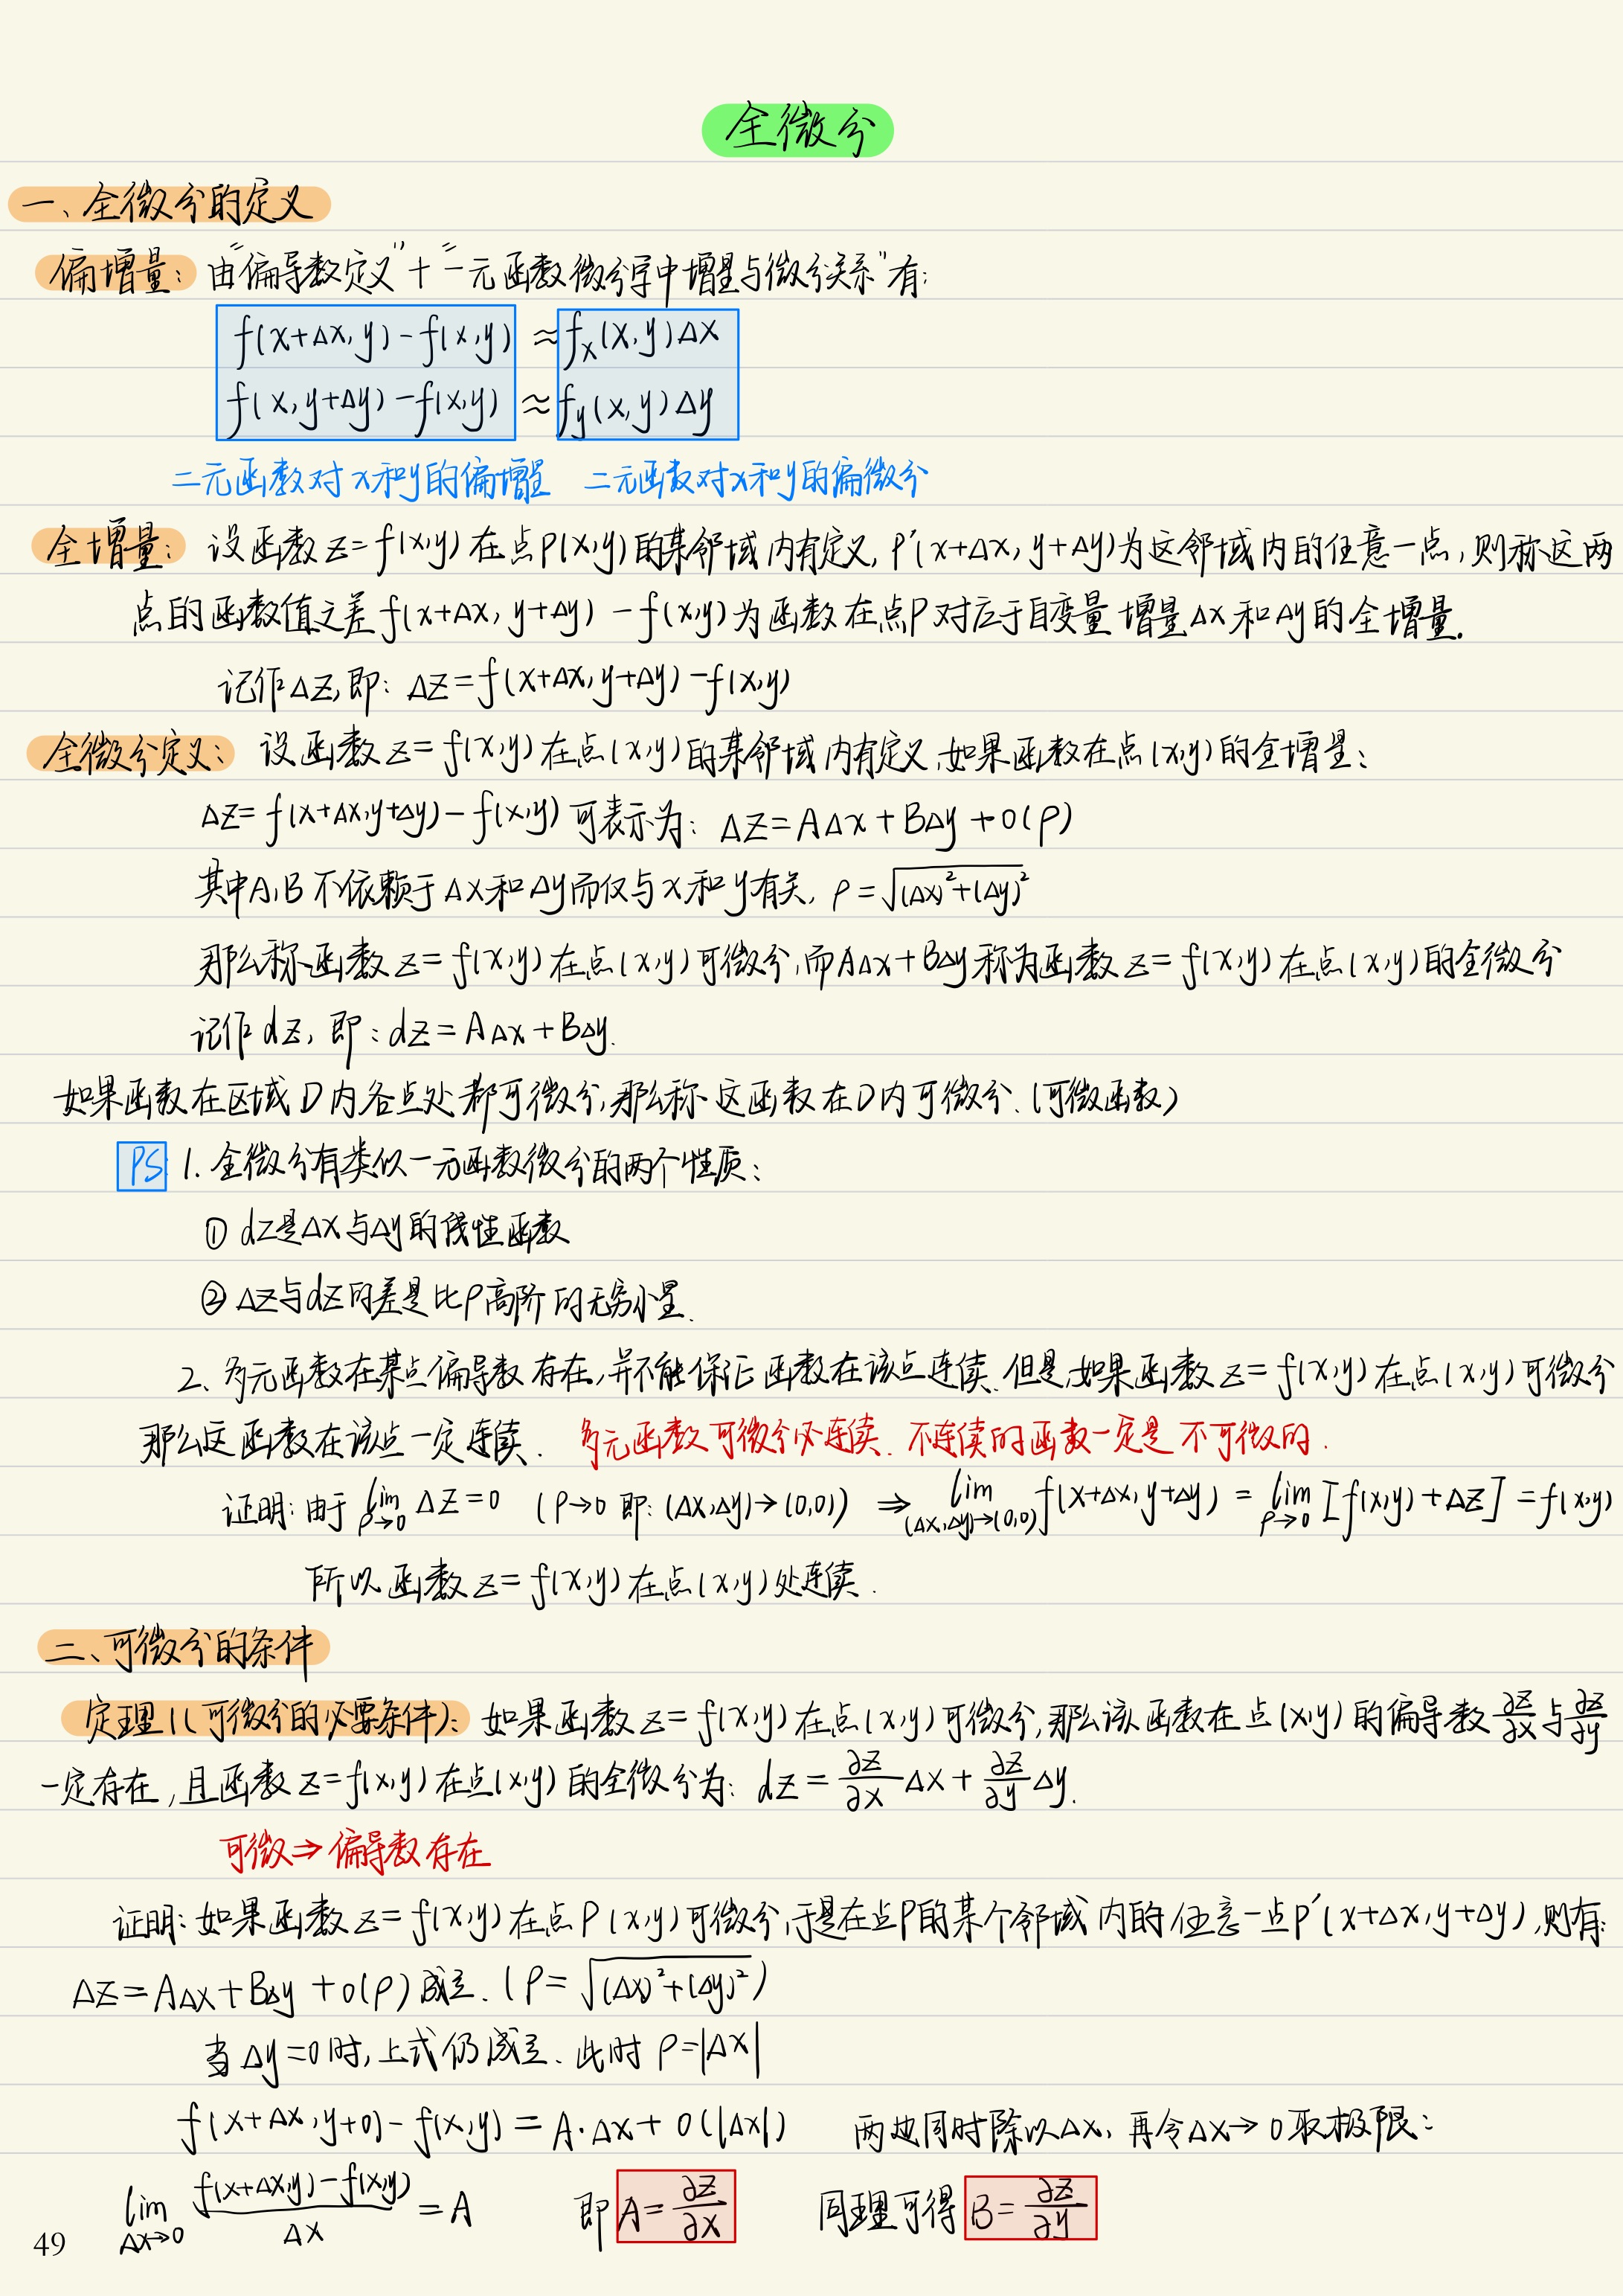 全微分
一、全微分的定义
偏增量：由“偏导数定义”+“一元函数微分学中增量与微分关系”有：
f(x+Δx,y)-f(x,y) ≈ fₓ(x,y)Δx
f(x,y+Δy)-f(x,y) ≈ f_y(x,y)Δy
二元函数对x和y的偏增量 二元函数对x和y的偏微分
全增量：设函数z=f(x,y)在点P(x,y)的某邻域内有定义,P′(x+Δx,y+Δy)为这邻域内的任意一点,则称这两
点的函数值之差f(x+Δx,y+Δy)-f(x,y)为函数在点P对应于自变量增量Δx和Δy的全增量.
记作Δz,即：Δz=f(x+Δx,y+Δy)-f(x,y)
全微分定义：设函数z=f(x,y)在点(x,y)的某邻域内有定义,如果函数在点(x,y)的全增量：
Δz=f(x+Δx,y+Δy)-f(x,y)可表示为：Δz=AΔx+BΔy+o(ρ)
其中A,B不依赖于Δx和Δy而仅与x和y有关,ρ=√((Δx)²+(Δy)²)
那么称函数z=f(x,y)在点(x,y)可微分,而AΔx+BΔy称为函数z=f(x,y)在点(x,y)的全微分
记作dz,即：dz=AΔx+BΔy.
如果函数在区域D内各点处都可微分,那么称这函数在D内可微分.(可微函数)
PS 1.全微分有类似一元函数微分的两个性质：
① dz是Δx与Δy的线性函数
② Δz与dz的差是比ρ高阶的无穷小量.
2、多元函数在某点偏导数存在,并不能保证函数在该点连续.但是,如果函数z=f(x,y)在点(x,y)可微分
那么这函数在该点一定连续. 多元函数可微分必连续.不连续的函数一定是不可微的.
证明:由于 lim_{ρ→0} Δz=0 (ρ→0即:(Δx,Δy)→(0,0)) ⇒ lim_{(Δx,Δy)→(0,0)} f(x+Δx,y+Δy) = lim_{ρ→0} [f(x,y)+Δz] =f(x,y)
所以函数z=f(x,y)在点(x,y)处连续.
二、可微分的条件
定理1(可微分的必要条件)：如果函数z=f(x,y)在点(x,y)可微分,那么该函数在点(x,y)的偏导数∂z/∂x与∂z/∂y
一定存在,且函数z=f(x,y)在点(x,y)的全微分为：dz=∂z/∂x Δx+∂z/∂y Δy.
可微⇒偏导数存在
证明:如果函数z=f(x,y)在点P(x,y)可微分,于是在点P的某个邻域内的任意一点P′(x+Δx,y+Δy),则有:
Δz=AΔx+BΔy+o(ρ)成立.(ρ=√((Δx)²+(Δy)²))
当Δy=0时,上式仍成立.此时ρ=|Δx|
f(x+Δx,y+0)-f(x,y)=A·Δx+o(|Δx|) 两边同时除以Δx,再令Δx→0取极限：
lim_{Δx→0} (f(x+Δx,y)-f(x,y))/Δx =A 即 A=∂z/∂x 同理可得 B=∂z/∂y
49